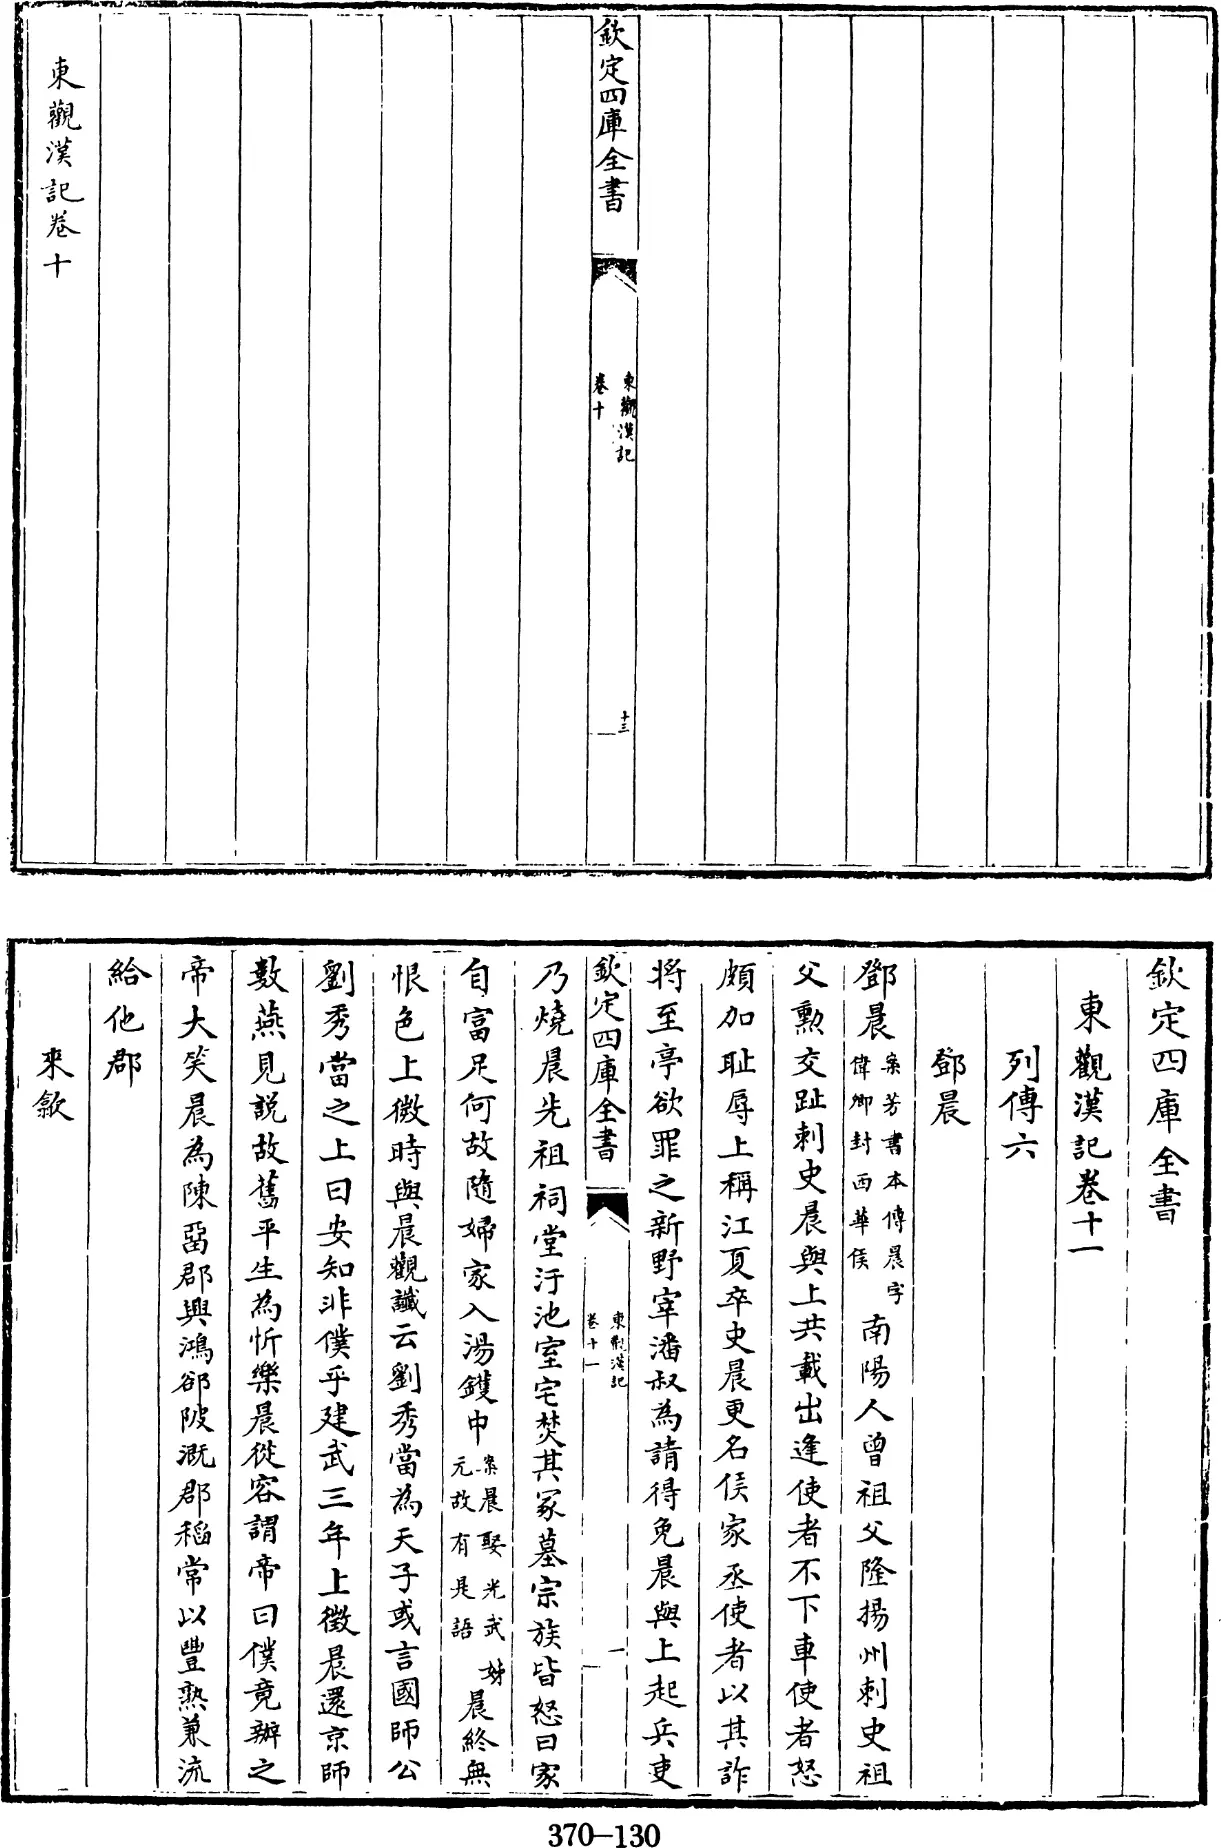 欽定四庫全書
東觀漢記
卷十
十三
東觀漢記卷十
欽定四庫全書
東觀漢記卷十一
列傳六
鄧晨
鄧晨案芳書本傳晨字偉卿封西華侯南陽人曾祖父隆揚州刺史祖
父勲交趾刺史晨與上共載出逢使者不下車使者怒
頗加耻辱上稱江夏卒史晨更名侯家丞使者以其詐
將至亭欲罪之新野宰潘叔為請得免晨與上起兵吏
欽定四庫全書
東觀漢記
卷十一
一
乃燒晨先祖祠堂汙池室宅焚其冢墓宗族皆怒曰家
自富足何故隨婦家入湯鑊中案晨娶光武姊元故有是語晨終無
恨色上微時與晨觀讖云劉秀當為天子或言國師公
劉秀當之上曰安知非僕乎建武三年上徵晨還京師
數燕見説故舊平生為忻樂晨從容謂帝曰僕竟辦之
帝大笑晨為陳畱郡興鴻郤陂溉郡稻常以豐熟兼流
給他郡
來歙
370-130